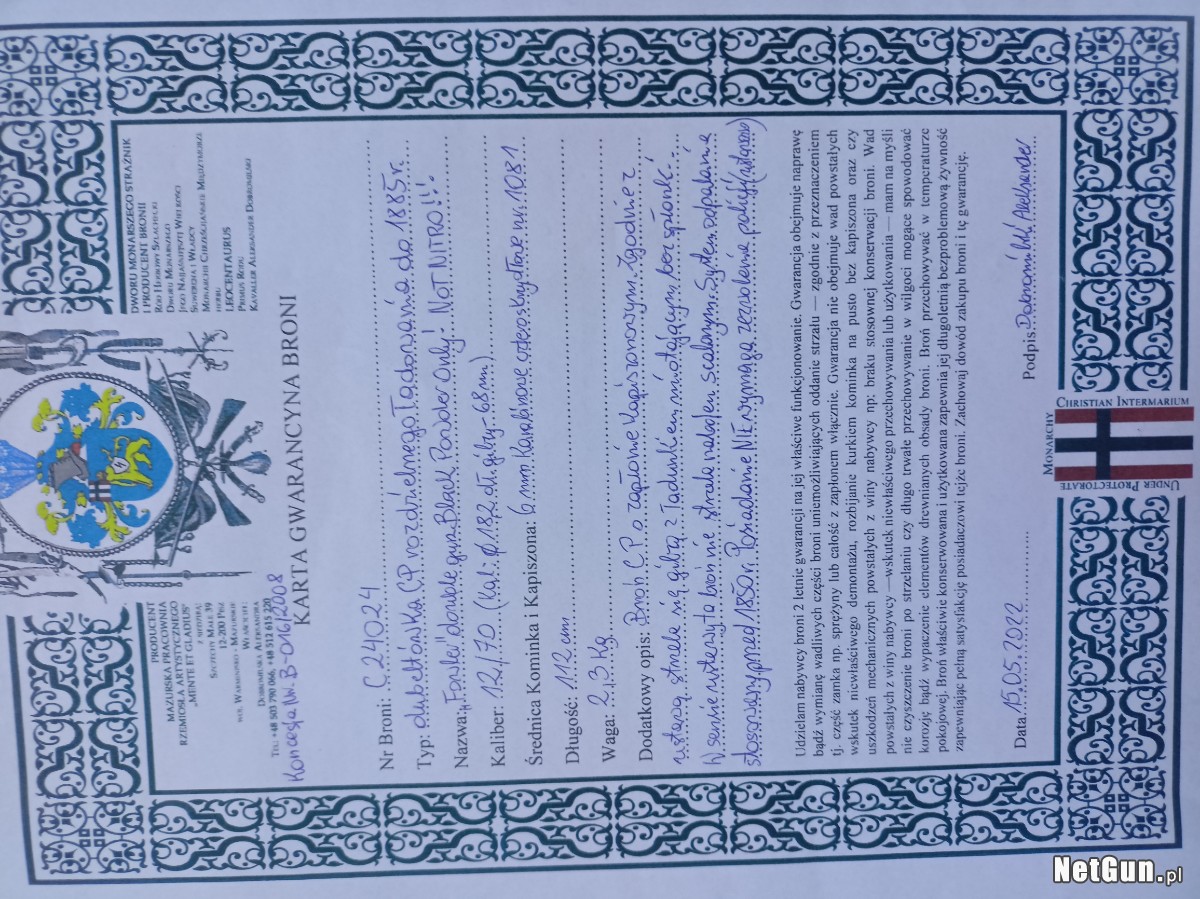 PRODUCENT
MAZURSKA PRACOWNIA
RZEMIOSŁA ARTYSTYCZNEGO
„MENTE ET GLADIUS”
Z SIEDZIBĄ:
SZCZECHY MAŁE 39
12-200 PISZ
WOJ. WARMIŃSKO - MAZURSKIE
WŁAŚCICIEL:
DOBROMILSKA ALEKSANDRA
TEL: +48 503 790 066, +48 512 615 220
Koncesja Nr. B-016/2008
DWORU MONARSZEGO STRAŻNIK
I PRODUCENT BRONII
ROD HERBOWY SZLACHECKI
DWORU MONARSZEGO
JEGO NAJJAŚNIEJSZEJ WIELKOŚCI
SUWERENA I WŁADCY
MONARCHII CHRZEŚCIJAŃSKIE MIĘDZYMORZE
HERBU
LEOCENTAURUS
PRIMUS RODU
KAVALLER ALEKSANDER DOBROMILSKI
KARTA GWARANCYJNA BRONI
Nr Broni: C 24024
Typ: dubeltówka CP rozdzielnego ładowania do 1885r.
Nazwa: „Forslei" double gun Black Powder Only! Not NITRO!!!
Kaliber: 12/70 (kal. ϕ 18,2 dł. gilzy - 68 mm)
Średnica Kominka i Kapiszona: 6 mm Karabinowe czteroskrzydłowe nr. 1081
Długość: 112 cm
Waga: 2.3 Kg
Dodatkowy opis: Broń C.P. o zapłonie kapiszonowym. Zgodnie z
ustawą strzela się gilzą z ładunkiem miotającym bez spłonki -
w sensie ustawy ta broń nie strzela nabojem scalonym. System odpalania
stosowany przed 1850r. Posiadanie NIE wymaga zezwolenia policji
Udzielam nabywcy broni 2 letnie gwarancji na jej właściwe funkcjonowanie. Gwarancja obejmuje naprawę
bądź wymianę wadliwych części broni uniemożliwiających oddanie strzału — zgodnie z przeznaczeniem
tj. część zamka np. sprężyny lub całość z zapłonem włącznie. Gwarancja nie obejmuje wad powstałych
wskutek niewłaściwego demontażu, rozbijanie kurkiem kominka na pusto bez kapiszona oraz czy
uszkodzeń mechanicznych powstałych z winy nabywcy np: braku stosownej konserwacji broni. Wad
powstałych z winy nabywcy —wskutek niewłaściwego przechowywania lub użytkowania — mam na myśli
nie czyszczenie broni po strzelaniu czy długo trwałe przechowywanie w wilgoci mogące spowodować
korozję bądź wypaczenie elementów drewnianych obsady broni. Broń przechowywać w temperaturze
pokojowej. Broń właściwie konserwowana i użytkowana zapewnia jej długoletnią bezproblemową żywność
zapewniając pełną satysfakcję posiadaczowi tejże broni. Zachowaj dowód zakupu broni i tę gwarancję.
Data 15.05.2022 Podpis Dobromilski Aleksander
MONARCHY
CHRISTIAN INTERMARIUM
UNDER PROTECTORATE
NetGun.pl